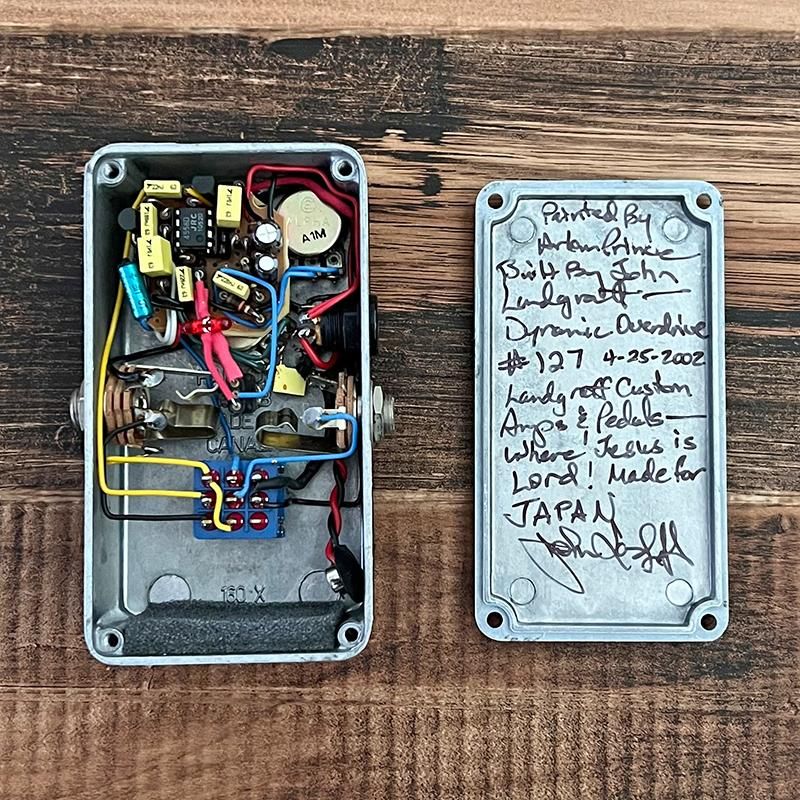 4558D
JRC
ALPHA
A1M
DE
CANADA
160 X
Painted By
Adam Prince
Built By John
Landgraff
Dynamic Overdrive
#127 4-25-2002
Landgraff Custom
Amps & Pedals
Where Jesus is
Lord! Made for
JAPAN